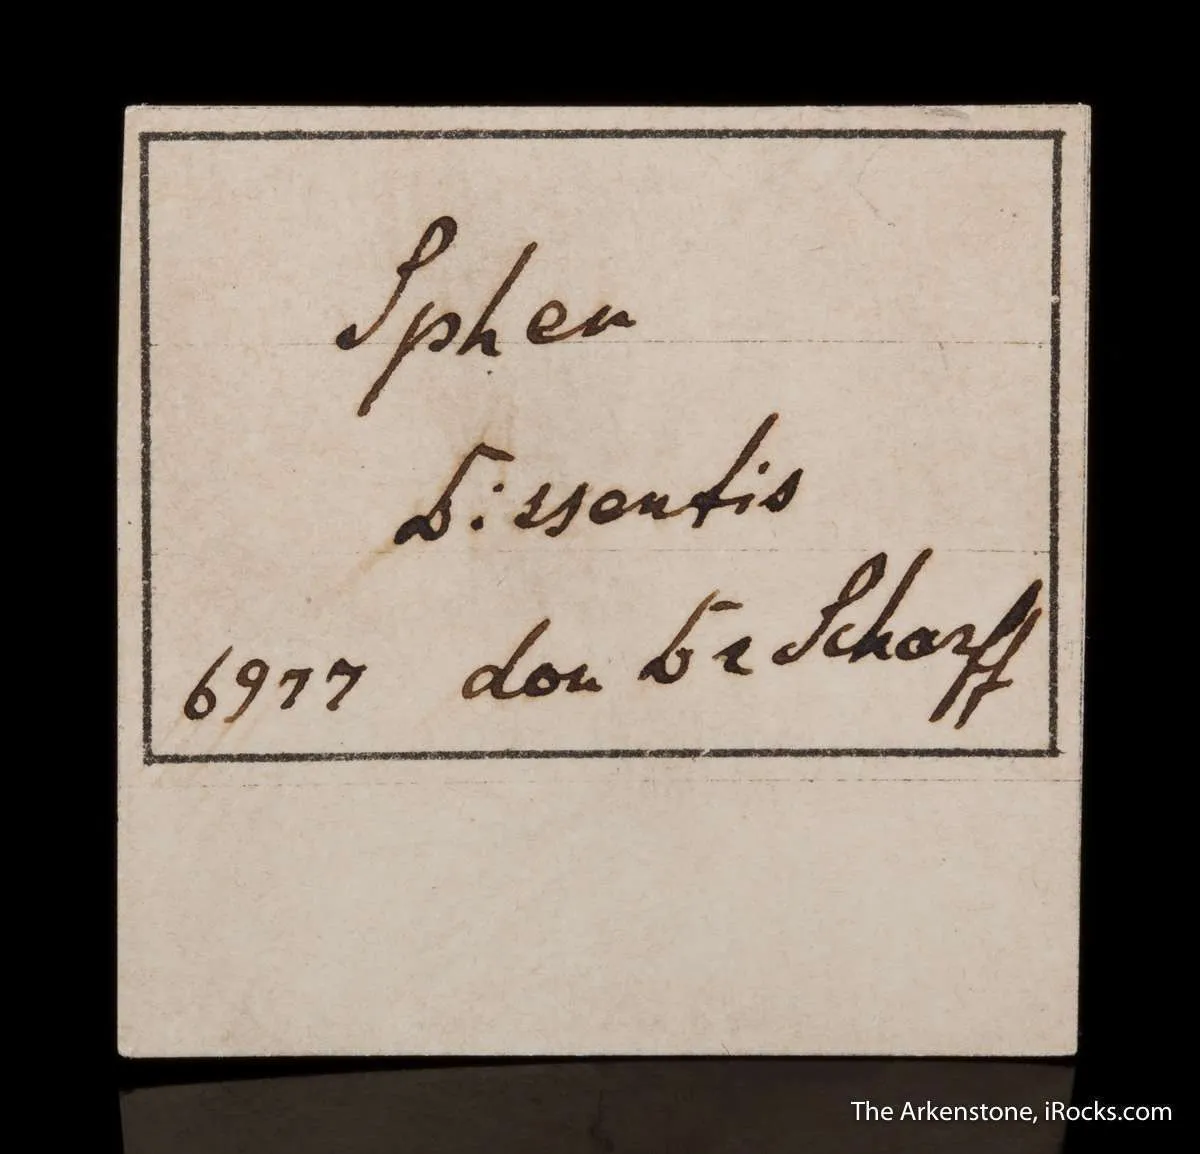 Sphen
Dissentis
6977 don Dr Scharff
The Arkenstone, iRocks.com